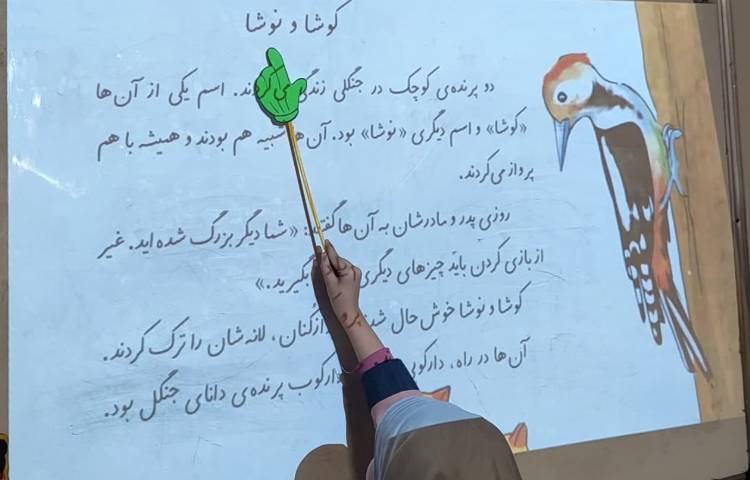 کوشا و نوشا
دو پرنده‌ی کوچک در جنگلی زندگی ند. اسم یکی از آن‌ها
«کوشا» و اسم دیگری «نوشا» بود. آن‌ها شبیه هم بودند و همیشه با هم
پرواز می‌کردند.
روزی پدر و مادرشان به آن‌ها گفتند: «شما دیگر بزرگ شده‌اید. غیر
از بازی کردن باید چیزهای دیگری بگیرید.»
کوشا و نوشا خوش‌حال شد ازکُنان، لانه‌شان را ترک کردند.
آن‌ها در راه، دارکوبی دارکوب پرنده‌ی دانای جنگل بود.